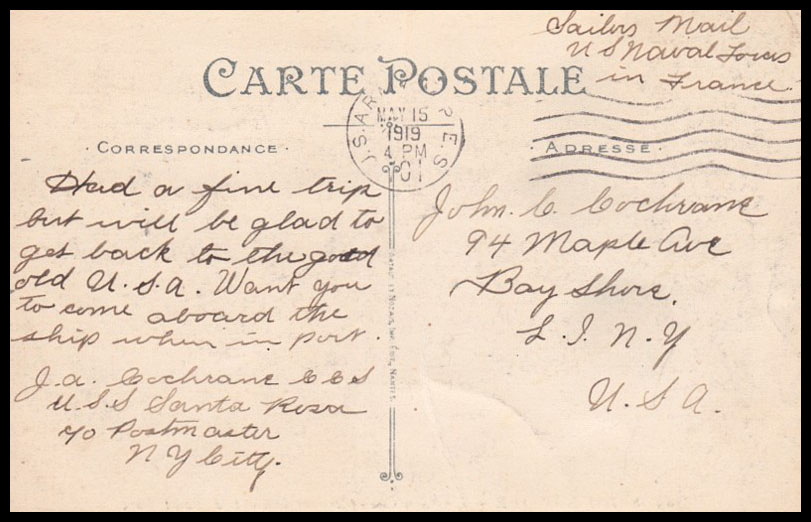 Sailors Mail
U S Naval Forces
in France
CARTE POSTALE
MAY 15
1919
4 PM
· CORRESPONDANCE ·
· ADRESSE ·
Had a fine trip
but will be glad to
get back to the good
old U.S.A. Want you
to come aboard the
ship when in port.
J.A. Cochrane C C S
U.S.S Santa Rosa
c/o Postmaster
N Y City.
John. C. Cochrane
94 Maple Ave
Bay Shore.
L.I. N.Y
U.S.A.